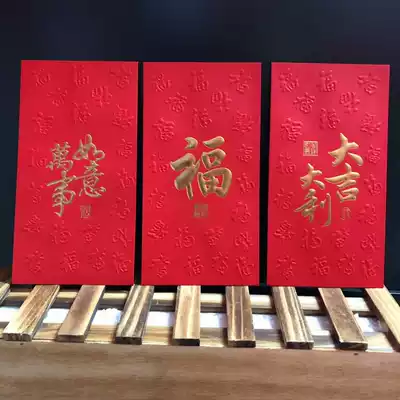 萬事
如意
福
大吉
大利